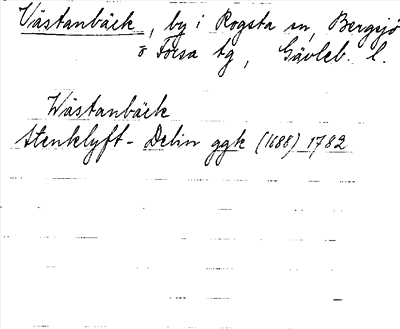 Västanbäck, by i Rogsta sn, Bergsjö
o Forsa tg, Gävleb. l.
Wästanbäck
Stenklyft - Delin ggk (1688) 1782